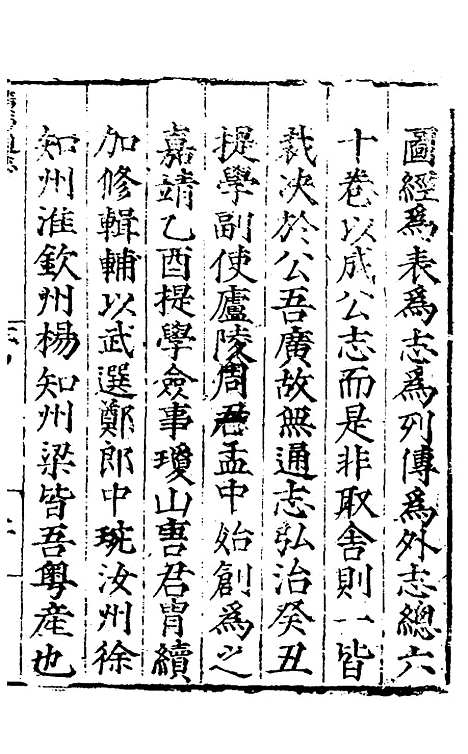 圖經為表為志為列傳為外志總六
十卷以成公志而是非取舍則一皆
裁決於公吾廣故無通志弘治癸丑
提學副使廬陵周君孟中始創為之
嘉靖乙酉提學僉事瓊山唐君胄續
加修輯輔以武選鄭郎中琬汝州徐
知州淮欽州楊知州梁皆吾粵產也